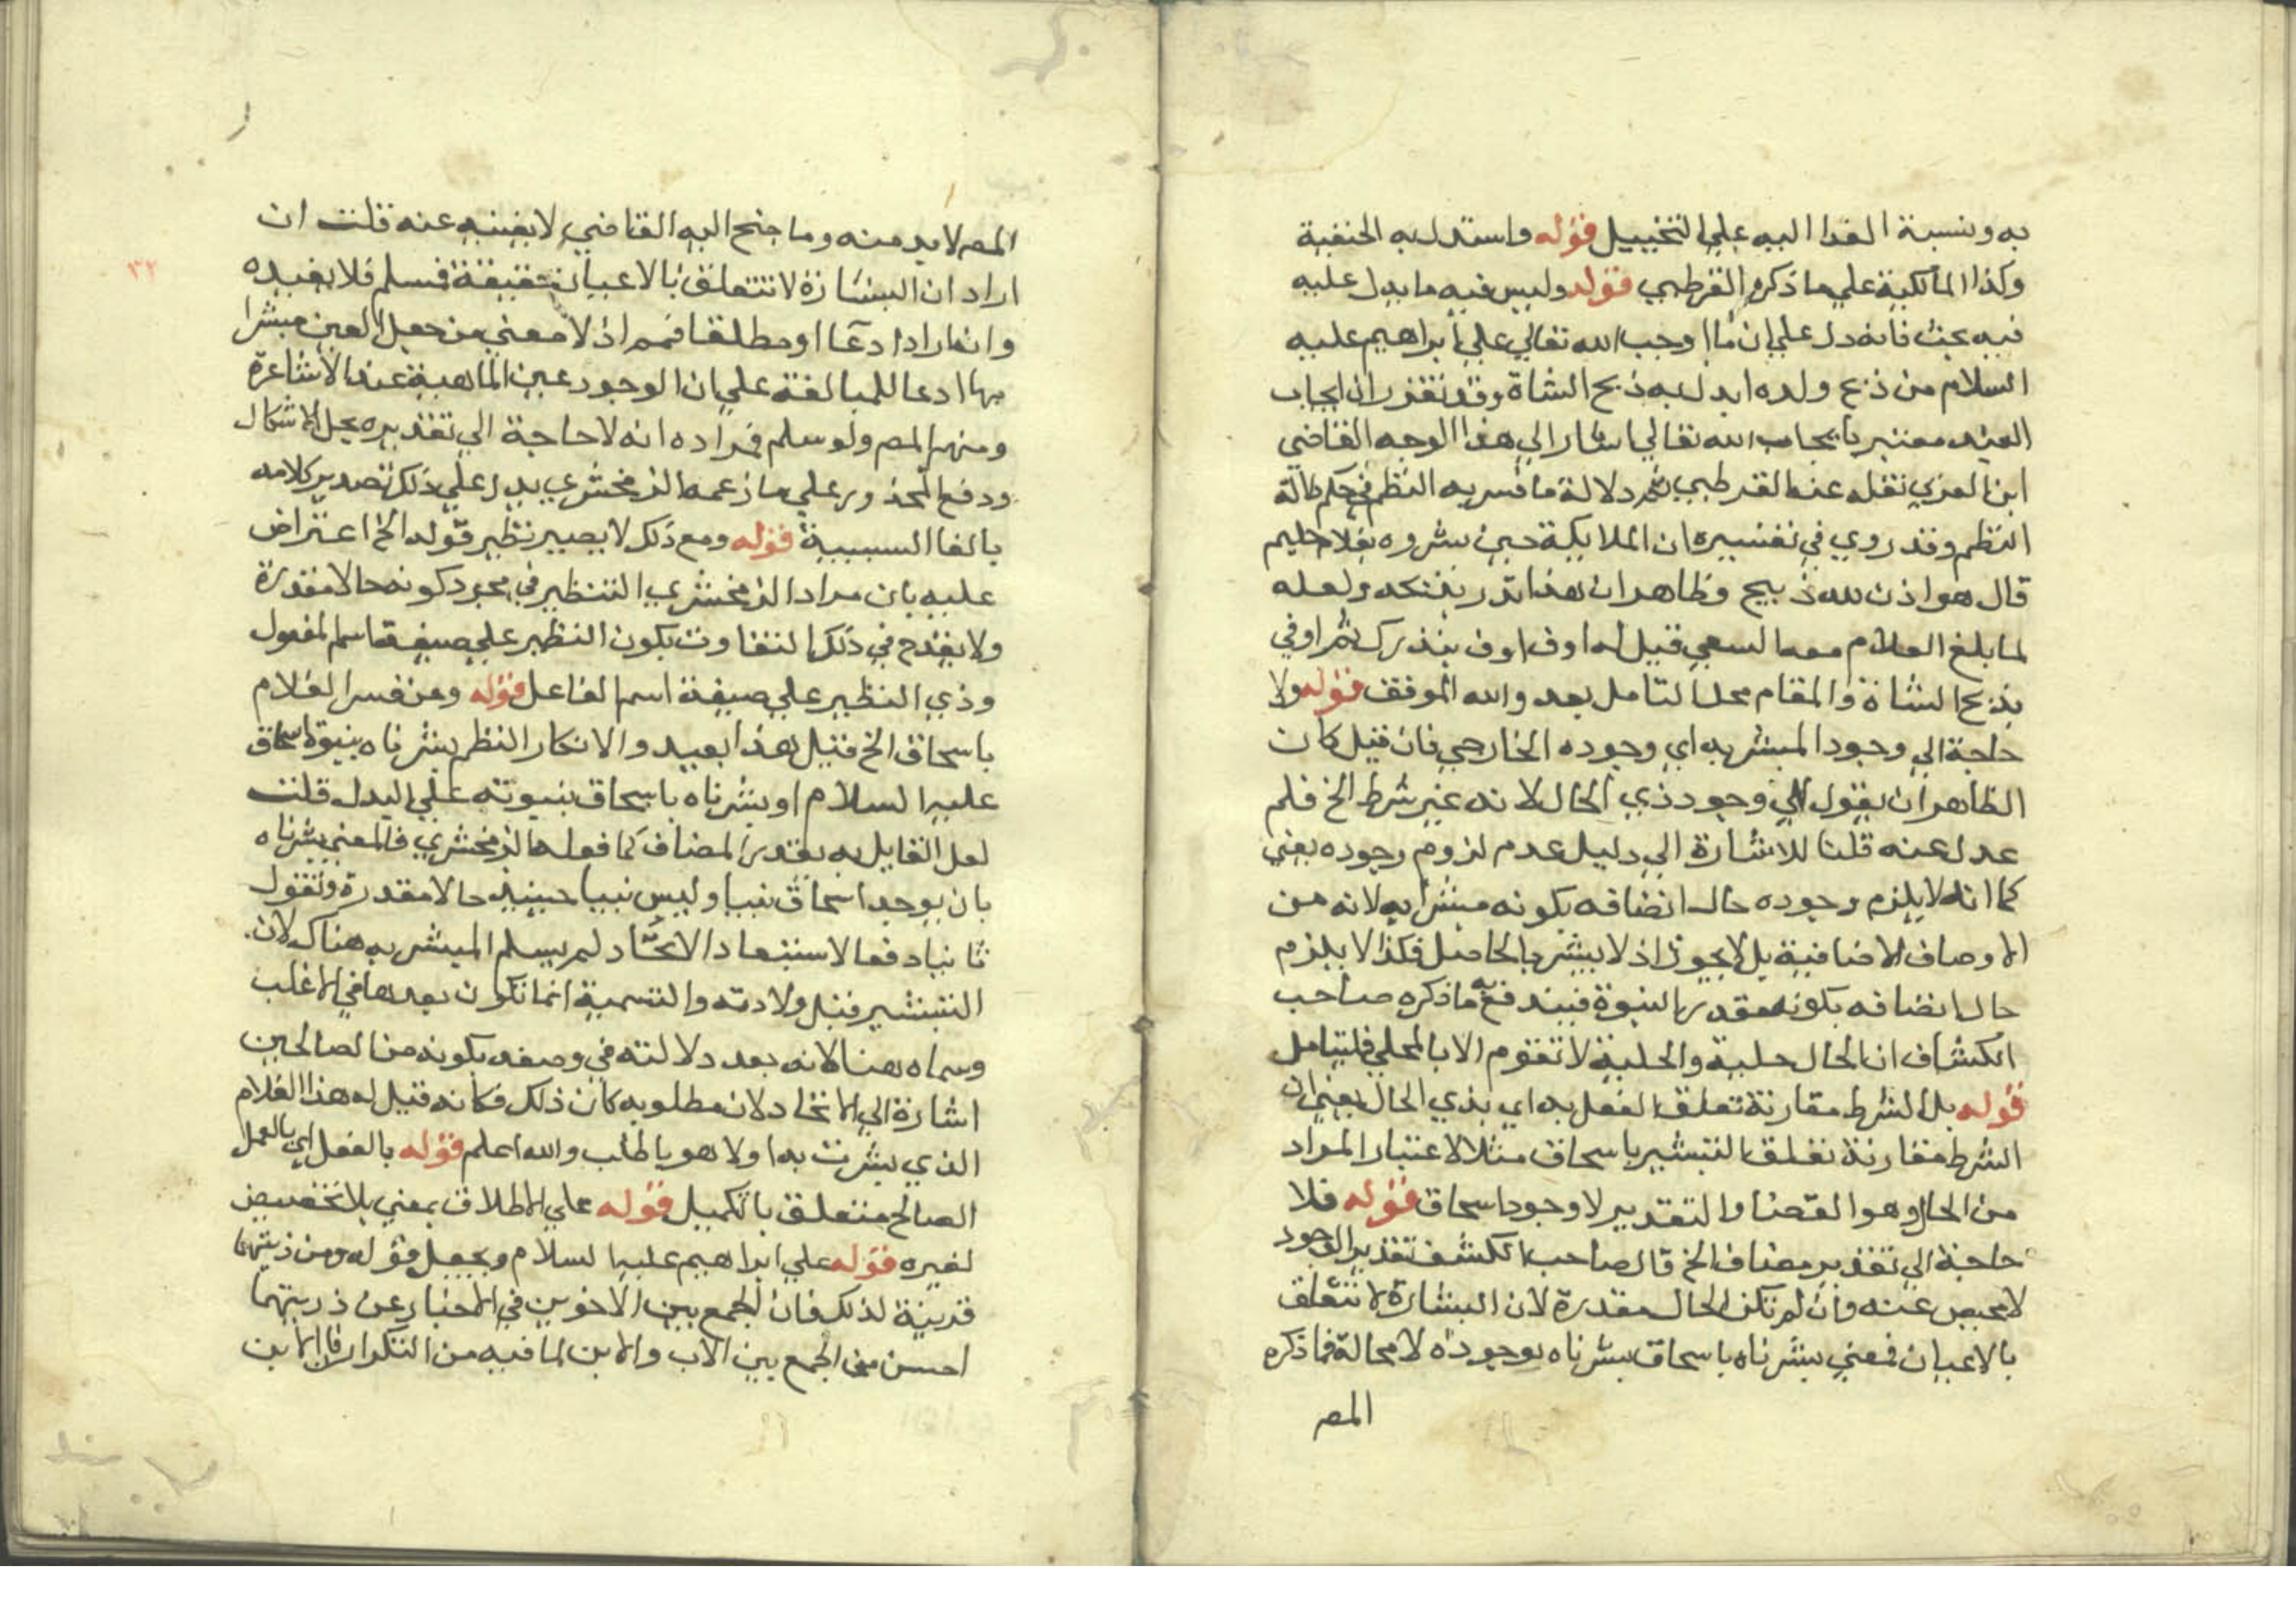 به ونسبة الفدا اليه علي التخييل قوله واستدل به الحنفية
وكذا المالكية علي ما ذكره القرطبي قوله وليس فيه ما يدل عليه
فيه بحث فانه دل علي ان ما اوجب الله تعالي علي ابراهيم عليه
السلام من ذبح ولده ابدل به ذبح الشاة وقد تقرر ان ايجاب
العبد معتبر بايجاب الله تعالي اشار الي هذا الوجه القاضي
ابن العربي نقله عنه القرطبي ثم دلالة ما فسر به النظم في حكم دلالة
النظم وقد روي في تفسيره ان الملايكة حين بشروه بغلام حليم
قال هو اذن لله ذبيح وظاهر ان هذا نذر ولعله
لما بلغ الغلام معه السعي قيل له اوف اوف بنذرك ثم اوفي
بذبح الشاة والمقام محل التامل بعد والله الموفق قوله ولا
حاجة الي وجود المبشر به اي وجوده الخارجي فان قيل كان
الظاهر ان يقول الي وجود ذي الحال لانه غير شرط الخ فلم
عدل عنه قلنا للاشارة الي دليل عدم لزوم وجوده يعني
كما انه لا يلزم وجوده حال اتصافه بكونه مبشرا به لانه من
الاوصاف الاضافية بل لا يجوز اذ لا يبشر بالحاصل فكذا لا يلزم
حال اتصافه بكونه مقدر النبوة فيندفع به ما ذكره صاحب
الكشاف ان الحال حلية والحلية لا تقوم الا بالمحلي فليتامل
قوله بل الشرط مقارنة تعلق الفعل به اي بذي الحال يعني ان
الشرط مقارنة تعلق التبشير باسحاق مثلا لاعتبار المراد
من الحال وهو القضا والتقدير لا وجود اسحاق قوله فلا
حاجة الي تقدير مضاف الخ قال صاحب الكشف تقدير الوجود
لا محيص عنه وان لم تكن الحال مقدرة لان البشارة لا تتعلق
بالاعيان فمعني بشرناه باسحاق بشرناه بوجوده لا محالة فما ذكره
المص
المص لا بد منه وما جنح اليه القاضي لا يغنيه عنه قلت ان
اراد ان البشارة لا تتعلق بالاعيان حقيقة فمسلم فلا يفيده
وان اراد ادعا او مطلقا فمم اذ لا معني من جعل العين مبشرا
بها ادعا للمبالغة علي ان الوجود عين الماهية عند الاشاعرة
ومنهم المص ولو سلم فمراده انه لا حاجة الي تقديره بحل الاشكال
ودفع المحذور علي ما زعمه الزمخشري يدل علي ذلك تصدير كلامه
بالفا السببية قوله ومع ذلك لا يصير نظير قوله الخ اعتراض
عليه بان مراد الزمخشري التنظير في مجرد كونه حالا مقدرة
ولا يقدح في ذلك التفاوت بكون النظير علي صيغة اسم المفعول
وذي النظير علي صيغة اسم الفاعل قوله ومن فسر الغلام
باسحاق الخ قيل هذا بعيد والا لكان النظم بشرناه بنبوة اسحاق
عليه السلام او بشرناه باسحاق بنبوته علي البدل قلت
لعل القايل به يقدر المضاف كما فعله الزمخشري فالمعني بشرناه
بان يوجد اسحاق نبيا وليس نبيا حينيذ حالا مقدرة ونقول
ثانيا دفعا لاستبعاد الاتحاد لم يسم المبشر به هناك لان
التبشير قبل ولادته والتسمية انما تكون بعدها في الاغلب
وسماه هنا لانه بعد ولادته في وصفه بكونه من الصالحين
اشارة الي الاتحاد لان مطلوبه كان ذلك فكانه قيل له هذا الغلام
الذي بشرت به اولا هو ما طلب والله اعلم قوله بالفعل اي بالعمل
الصالح متعلق بالتكميل قوله علي الاطلاق يعني بلا تخصيص
لغيره قوله علي ابراهيم عليه السلام ويجعل قوله ومن ذريتهما
قرينة لذلك فان الجمع بين الاخوين في الاخبار عن ذريتهما
احسن من الجمع بين الاب والابن لما فيه من التكرار فان الابن
٣٢